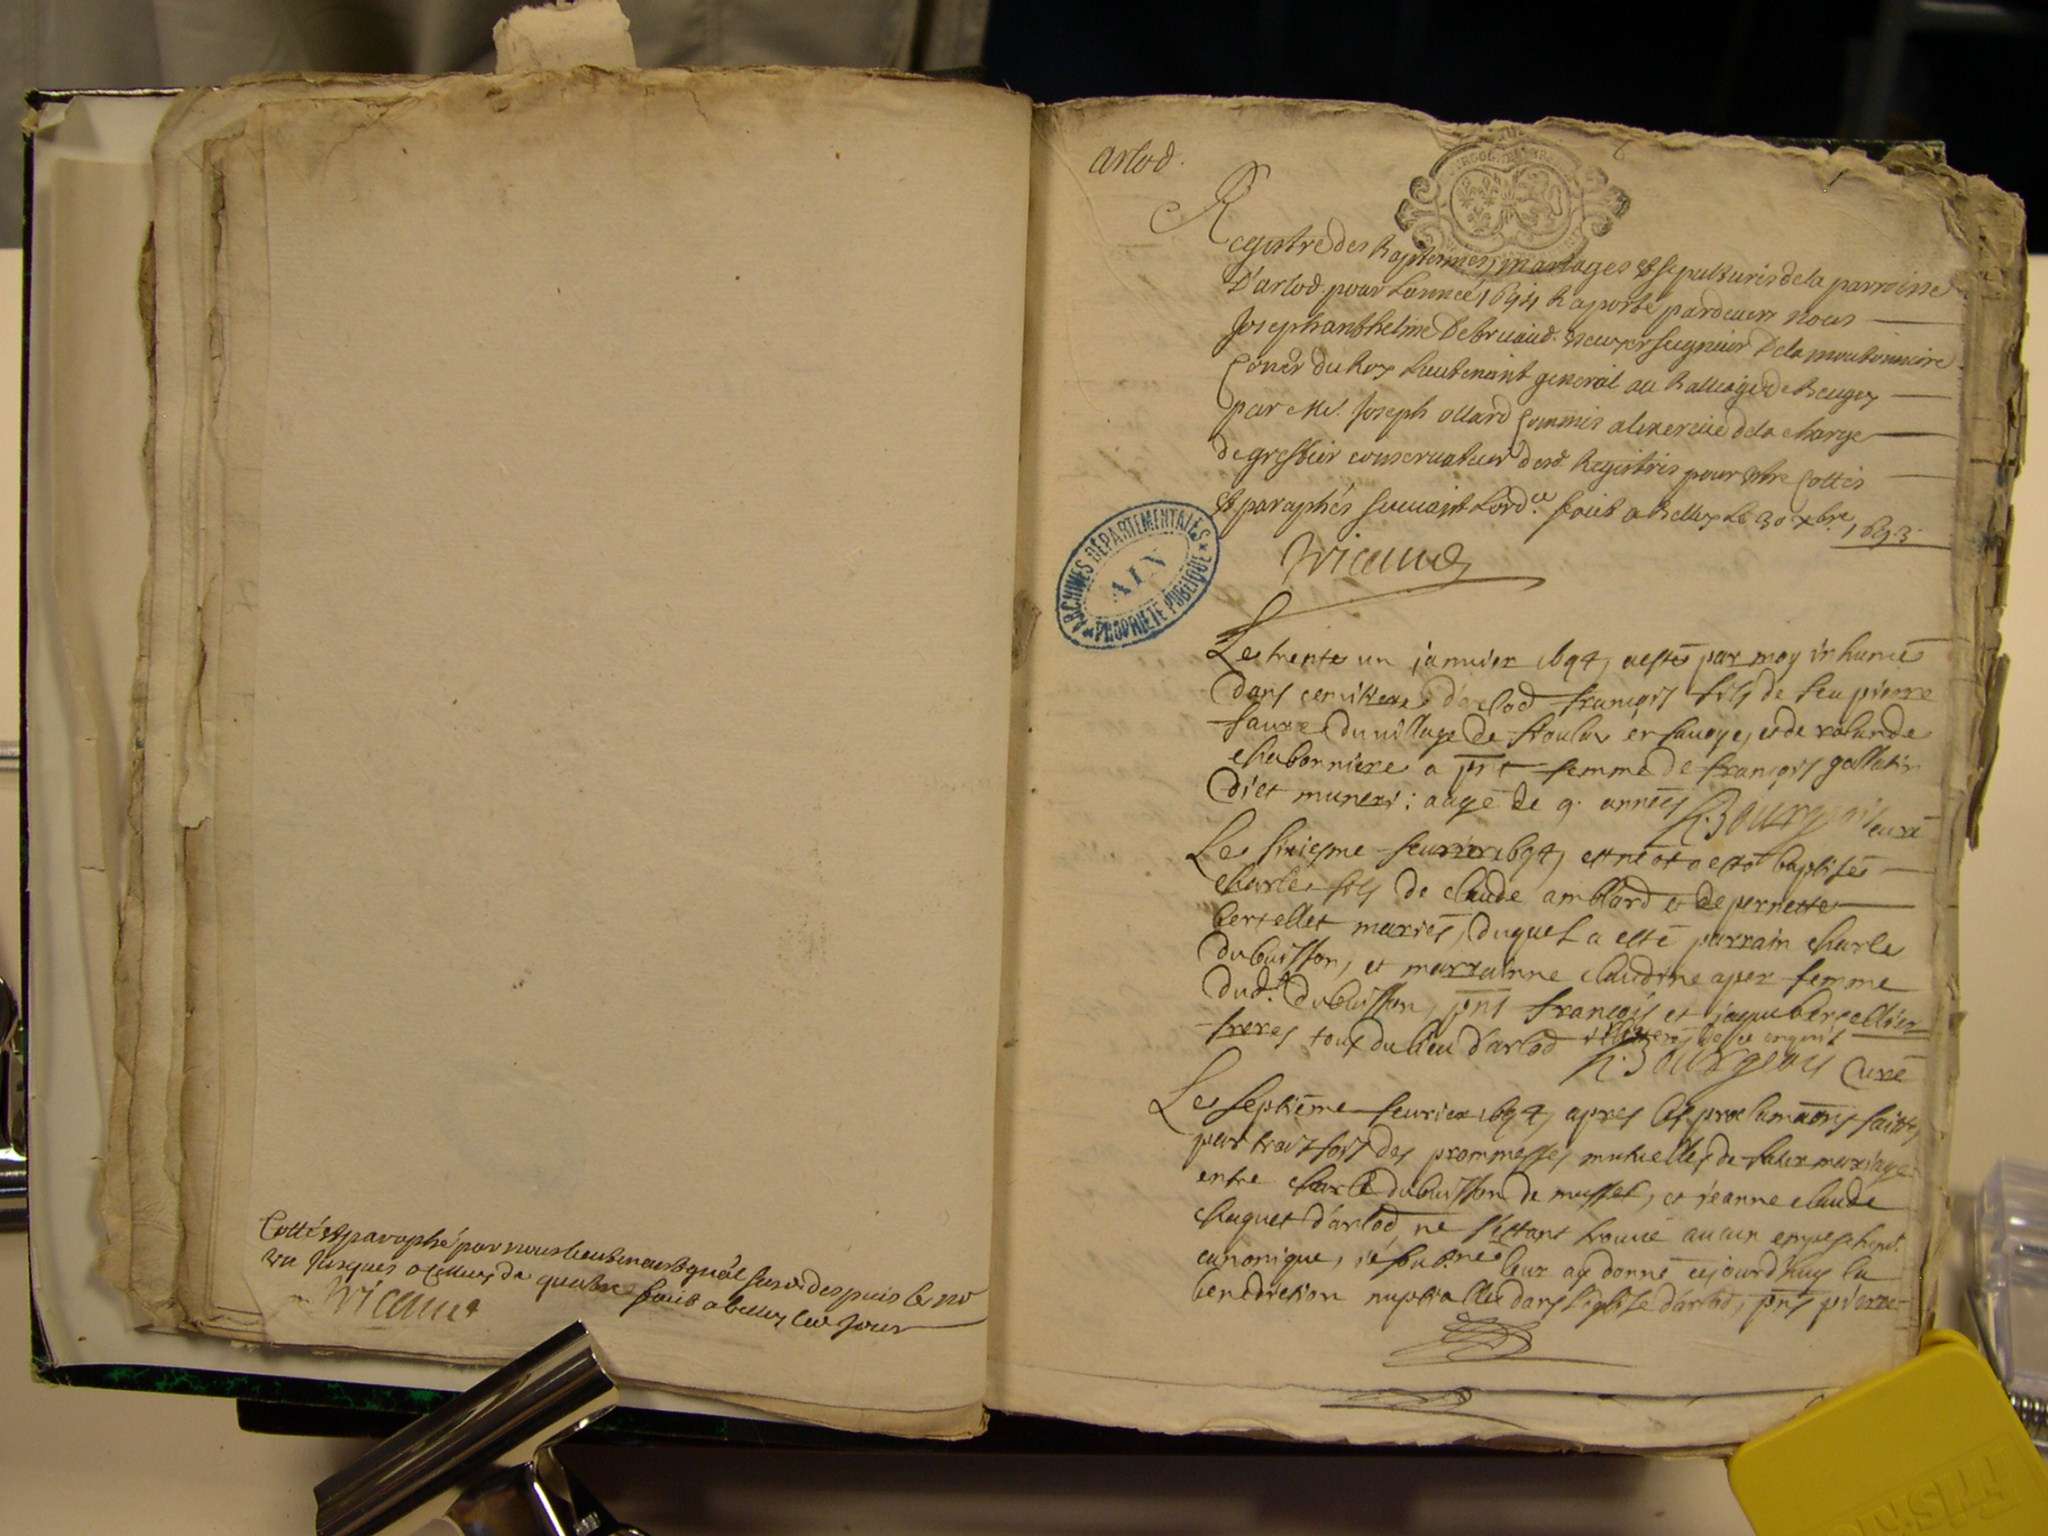 Cotté et paraphé par nous lieutenant gnâl susd. despuis le no
un jusques a celluy de quatre fait a belley led. jour
arlod.
Registre des Baptesmes, mariages et sepultures de la parroisse
D'arlod pour Lannée 1694 Raporté pardevers nous
Joseph anthelme seigneur De la moutonniere
Coner du Roy Lieutenant general au Balliage de Beugey
par Me. Joseph ollard Commis a lexercice de la charge
de greffier conservateur desd. Registres pour estre Cottés
et paraphés suivant Lord.ce fait a Belley Le 30 xbre 1693.
ARCHIVES DÉPARTEMENTALES
AIN
PROPRIÉTÉ PUBLIQUE
Le trente un janvier 1694, a esté par moy inhumé
dans cemittere d'arlod françois fils de feu pierre
faure du village de en savoye, et de rolande
chabonniere a pnt femme de françois gallatin
dict muneri: aagé de 9. années Bourgeois curé
Le sixiesme feuvrier 1694, est né et a esté baptisé
charle fils de claude amblard et de pernette
berzellet mariés, duquel a esté parrain charle
dubuisson, et marrainne claudine femme
dud.t dubuisson, pnts françois et jaque
freres tous du lieu d'arlod illiterés de ce enquis
Bourgeois Curé
Le septiéme feuvrier 1694, apres les proclamaons faittes
par trois fois des prommesses mutuelles de futur mariage
entre charle dubuisson de mussel, et jeanne claude
chaquet d'arlod, ne s'estant trouvé aucun empeschemt.
canonique, je soubné leur ay donné cejourd'huy la
benediction nuptialle dans l'eglise d'arlod, pnts pierre